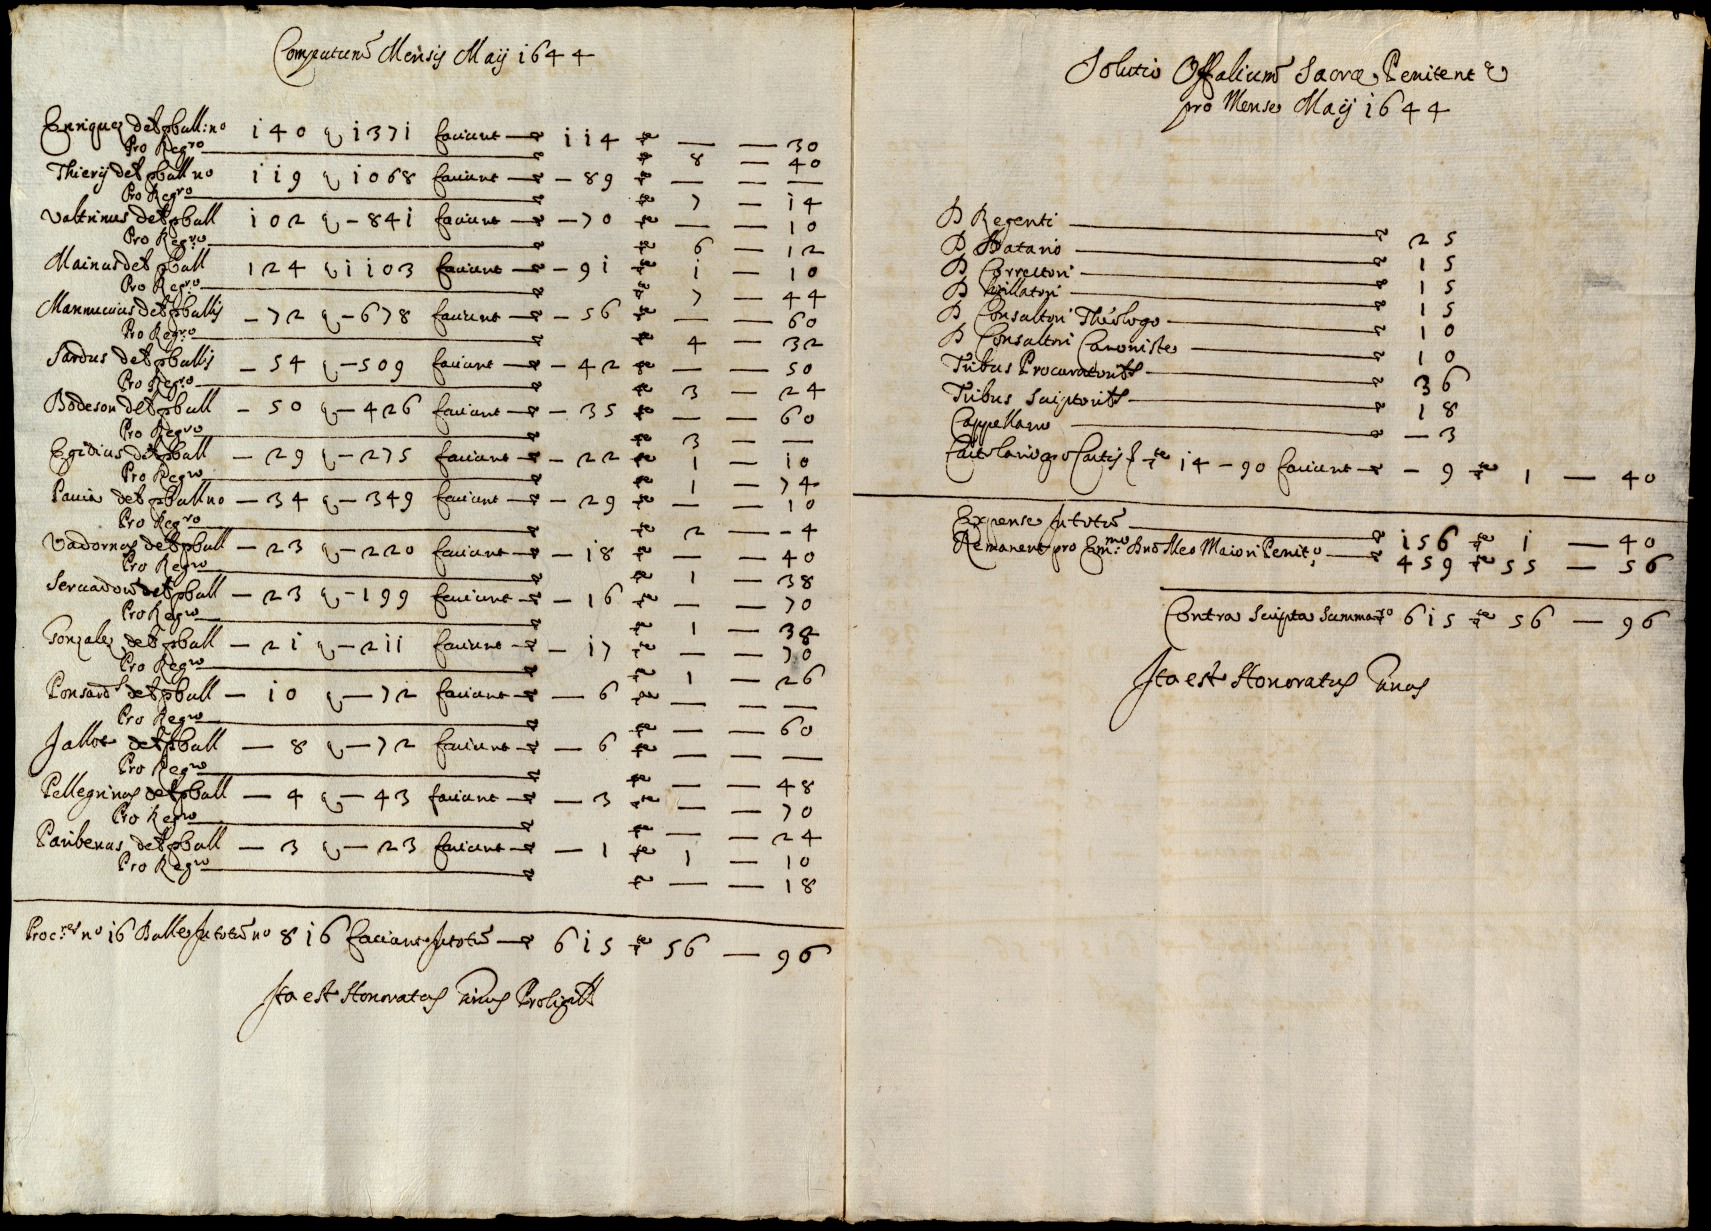 Computum Mensis Maij 1644
Enriquez det bull: no 140 q 1371 faciunt — 114 — — 30
Pro Regro — 8 — 40
Thierij det bull no 119 q 1068 faciunt — 89 — — —
Pro Regro — 7 — 14
Valtrinus det bull 102 q — 841 faciunt — 70 — — 10
Pro Regro — 6 — 12
Mainus det bull 124 q 1103 faciunt — 91 1 — 10
Pro Regro — 7 — 44
Mannucius det bullis — 72 q — 678 faciunt — 56 — — 60
Pro Regro — 4 — 32
Sardus det bullis — 54 q — 509 faciunt — 42 — — 50
Pro Regro — 3 — 24
Bodeson det bull — 50 q — 426 faciunt — 35 — — 60
Pro Regro — 3 — —
Egidius det bull — 29 q — 275 faciunt — 22 1 — 10
Pro Regro — 1 — 74
Pavia det bull no — 34 q — 349 faciunt — 29 — — 10
Pro Regro — 2 — 4
Vadornas det bull — 23 q — 220 faciunt — 18 — — 40
Pro Regro — 1 — 38
det bull — 23 q — 199 faciunt — 16 — — 70
Pro Regro — 1 — 38
Gonzalez det bull — 21 q — 211 faciunt — 17 — — 70
Pro Regro — 1 — 26
Ponsard det bull — 10 q — 72 faciunt — 6 — — —
Pro Regro — — — 60
Jallot det bull — 8 q — 72 faciunt — 6 — — —
Pro Regro — — — 48
Pellegrinus det bull — 4 q — 43 faciunt — 3 — — 70
Pro Regro — — — 24
Paribenus det bull — 3 q — 23 faciunt — 1 1 — 10
Pro Regro — — — 18
Proc.res no 16 Bulle in totum no 816 faciunt in totum — 615 56 — 96
Ita est Honoratus
Solutio Offalium Sacræ Penitent
pro Mense Maij 1644
D Regenti — 25
D Datario — 15
D Correctori — 15
D Sigillatori — 15
D Consultori Theologo — 10
D Consultori Canoniste — 10
Tribus Procuratoribus — 36
Tribus Scriptoribus — 18
Cappellano — 3
Cartolario pro Cartis 14 — 90 faciunt — 9 1 — 40
Expense in totum — 156 1 — 40
Remanent pro Em.mo Dno Meo Maiori Penit.o — 459 55 — 56
Contra Scripta Summa 615 56 — 96
Ita est Honoratus